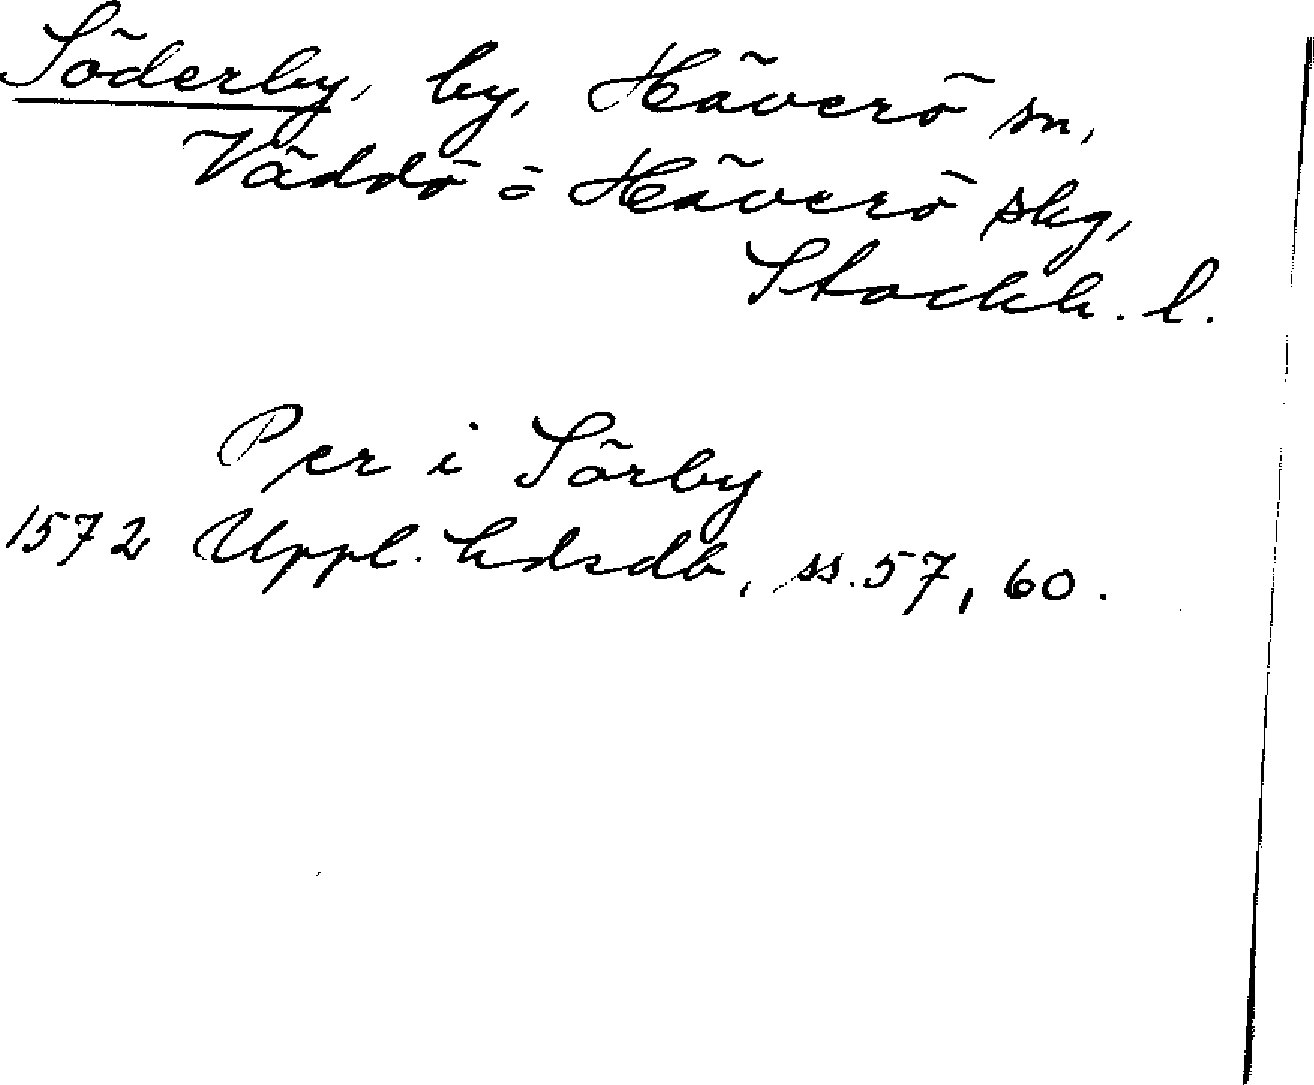 Söderby, by, Häverö sn,
Väddö o Häverö skg,
Stockh. l.
Per i Sörby
1572 Uppl. hdsdb, ss. 57, 60.